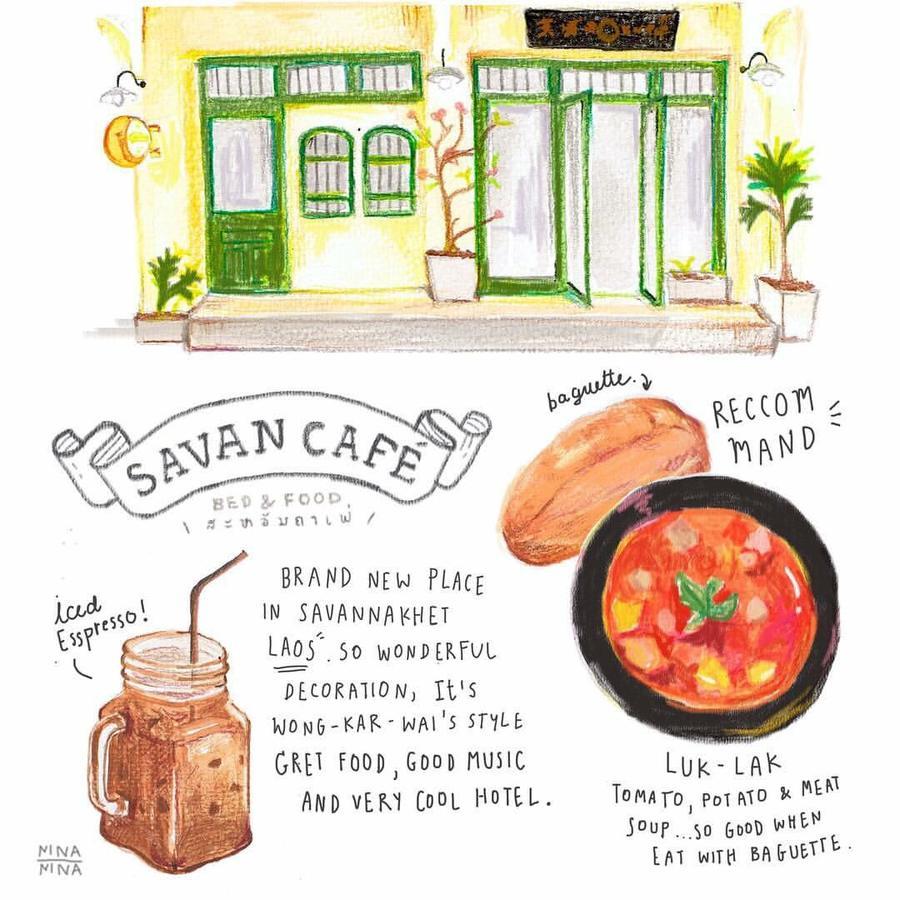 SAVAN CAFÉ
BED & FOOD
สะหวันคาเฟ่
baguette.
RECCOM
MAND
iced
Esspresso!
BRAND NEW PLACE
IN SAVANNAKHET
LAOS". SO WONDERFUL
DECORATION, It's
WONG-KAR-WAI'S STYLE
GRET FOOD, GOOD MUSIC
AND VERY COOL HOTEL.
LUK-LAK
TOMATO, POTATO & MEAT
SOUP...SO GOOD WHEN
EAT WITH BAGUETTE.
MINA
MINA